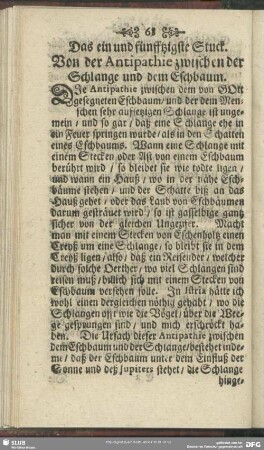 68
Das ein und fünfftzigste Stuck.
Von der Antipathie zwischen der
Schlange und dem Eschbaum.
DJe Antipathie zwischen dem von GOtt
gesegneten Eschbaum/ und der dem Men-
schen sehr auffsetzigen Schlange ist unge-
mein / und so gar / daß eine Schlange ehe in
ein Feuer springen wurde/ als in den Schatten
eines Eschbaums. Wann eine Schlange mit
einem Stecken oder Ast von einem Eschbaum
berührt wird / so bleibet sie wie todte ligen /
und wann ein Hauß/ wo in der nähe Esch-
bäume stehen / und der Schatte biß an das
Hauß gehet / oder das Laub von Eschbäumen
darum gesträuet wird / so ist dasselbige gantz
sicher von der gleichen Ungezifer. Macht
man mit einem Stecken von Eschenholtz einen
Creyß um eine Schlange/ so bleibt sie in dem
Creyß ligen / also/ daß ein Reisender/ welcher
durch solche Oerther/ wo viel Schlangen sind
reisen muß/ billich sich mit einem Stecken von
Eschbaum versehen solle. In Istria hätte ich
wohl einen dergleichen nöthig gehabt / wo die
Schlangen offt wie die Vögel/ über die We-
ge gesprungen sind/ und mich erschröckt ha-
ben. Die Ursach dieser Antipathie zwischen
dem Eschbaum und der Schlange/ bestehet inde-
me/ daß der Eschbaum unter dem Einfluß der
Sonne und deß Jupiters stehet/ die Schlange
hinge-
SLUB
DFG